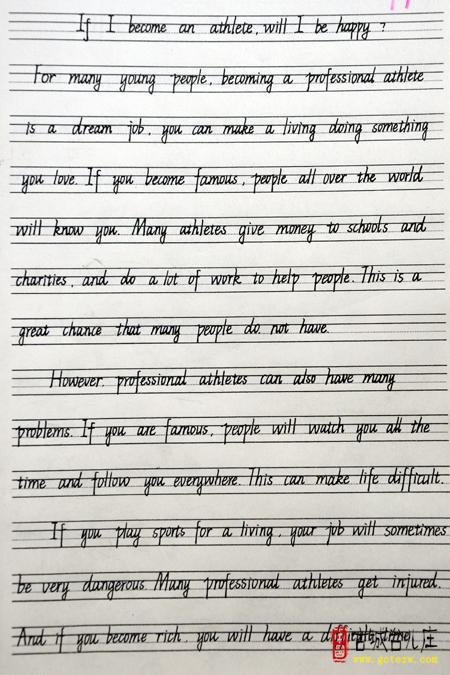 If I become an athlete, will I be happy?
For many young people, becoming a professional athlete
is a dream job, you can make a living doing something
you love. If you become famous, people all over the world
will know you. Many athletes give money to schools and
charities, and do a lot of work to help people. This is a
great chance that many people do not have.
However, professional athletes can also have many
problems. If you are famous, people will watch you all the
time and follow you everywhere. This can make life difficult.
If you play sports for a living, your job will sometimes
be very dangerous. Many professional athletes get injured.
And if you become rich, you will have a difficult time
www.gctezw.com